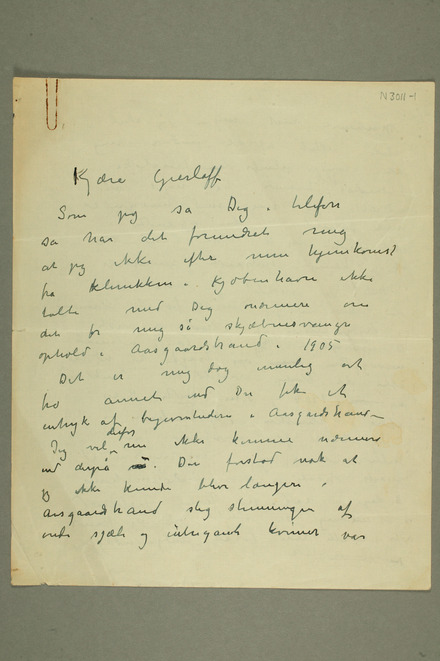 N 3011-1
Kjære Gierløff
Som jeg sa Dig i telefon
så har det forundret mig
at jeg ikke efter min hjemkomst
fra Klinikken i Kjøbenhavn ikke
talte med Dig nærmere om
det for mig så skjæbnesvangre
ophold i Aasgaardstrand i 1905
Det er mig dog umulig at
tro annet end Du fik et
indtryk af begivenhederne i Aasgaardstrand
Jeg vil derfor nu ikke komme nærmere
ind derpå. Du forstod nok at
jeg ikke kunde blive længere i
Aasgaardstrand slig stemningen af
onde sjæle og intrigante kvinner var